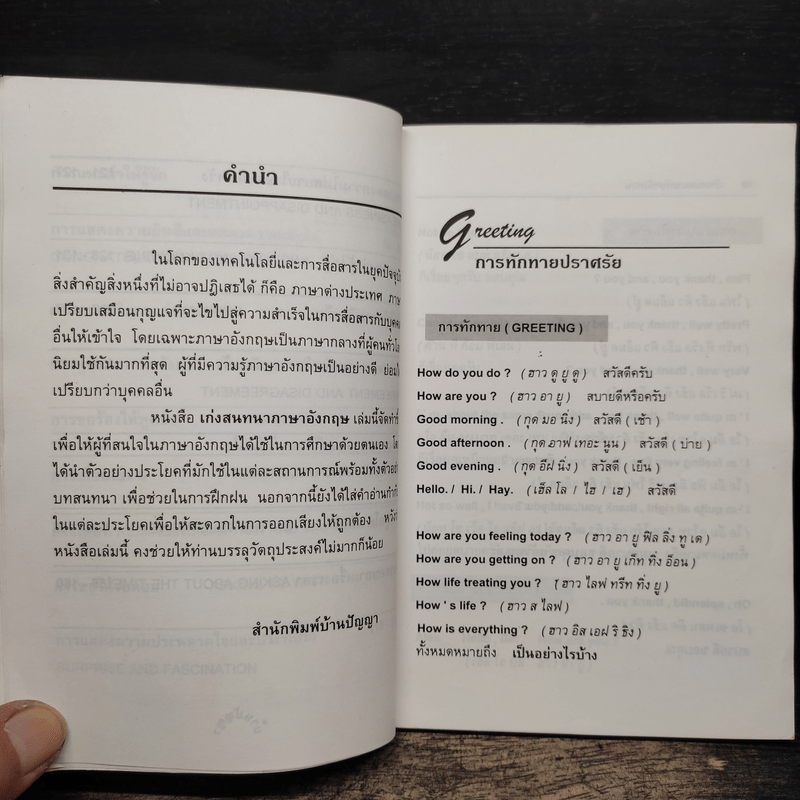 คำนำ
ในโลกของเทคโนโลยีและการสื่อสารในยุคปัจจุบั
สิ่งสำคัญสิ่งหนึ่งที่ไม่อาจปฏิเสธได้ ก็คือ ภาษาต่างประเทศ ภาษ
เปรียบเสมือนกุญแจที่จะไขไปสู่ความสำเร็จในการสื่อสารกับบุคค
อื่นให้เข้าใจ โดยเฉพาะภาษาอังกฤษเป็นภาษากลางที่ผู้คนทั่วโล
นิยมใช้กันมากที่สุด ผู้ที่มีความรู้ภาษาอังกฤษเป็นอย่างดี ย่อมไ
เปรียบกว่าบุคคลอื่น
หนังสือ เก่งสนทนาภาษาอังกฤษ เล่มนี้จัดทำขึ้
เพื่อให้ผู้ที่สนใจในภาษาอังกฤษได้ใช้ในการศึกษาด้วยตนเอง โด
ได้นำตัวอย่างประโยคที่มักใช้ในแต่ละสถานการณ์พร้อมทั้งตัวอย่
บทสนทนา เพื่อช่วยในการฝึกฝน นอกจากนี้ยังได้ใส่คำอ่านกำกั
ในแต่ละประโยคเพื่อให้สะดวกในการออกเสียงให้ถูกต้อง หวังว่
หนังสือเล่มนี้ คงช่วยให้ท่านบรรลุวัตถุประสงค์ไม่มากก็น้อย
สำนักพิมพ์บ้านปัญญา
Greeting
การทักทายปราศรัย
การทักทาย ( GREETING )
How do you do ? ( ฮาว ดู ยู ดู ) สวัสดีครับ
How are you ? ( ฮาว อา ยู ) สบายดีหรือครับ
Good morning . ( กุด มอ นิ่ง ) สวัสดี ( เช้า )
Good afternoon . ( กุด อาฟ เทอะ นูน ) สวัสดี ( บ่าย )
Good evening . ( กุด อีฝ นิ่ง ) สวัสดี ( เย็น )
Hello. / Hi. / Hay. ( เฮ็ล โล / ไฮ / เฮ ) สวัสดี
How are you feeling today ? ( ฮาว อา ยู ฟิล ลิ่ง ทู เด )
How are you getting on ? ( ฮาว อา ยู เก็ท ทิ่ง อ็อน )
How life treating you ? ( ฮาว ไลฟ ทรีท ทิ่ง ยู )
How ' s life ? ( ฮาว ส ไลฟ )
How is everything ? ( ฮาว อิส เอฝ ริ ธิง )
ทั้งหมดหมายถึง เป็นอย่างไรบ้าง